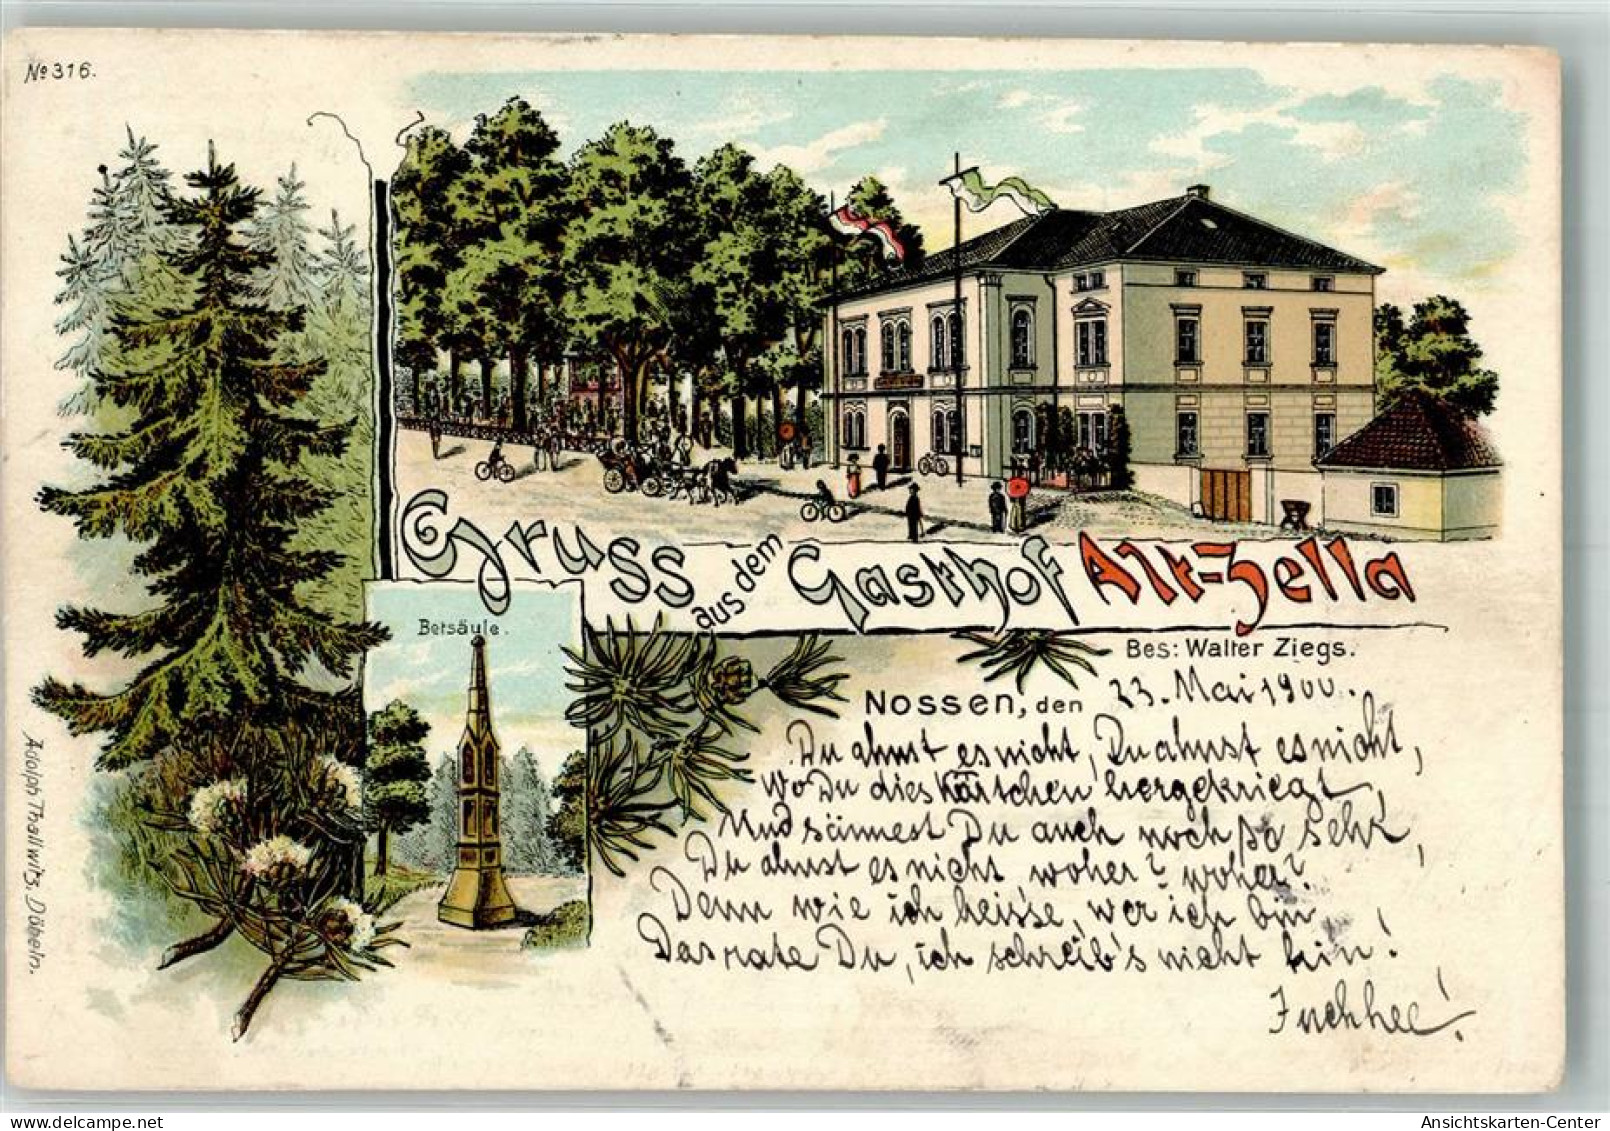 No 316.
Gruss aus dem Gasthof Alt-Zella
Bes: Walter Ziegs.
Betsäule.
Nossen, den 23. Mai 1900.
Du ahnst es nicht, Du ahnst es nicht,
Wo Du dies Kärtchen hergekriegt,
Und sännest Du auch noch so sehr,
Du ahnst es nicht woher? woher?
Denn wie ich heisse, wer ich bin
Das rate Du, ich schreib's nicht hin!
Juchhee!
Adolph Thallwitz, Döbeln.
Ansichtskarten-Center